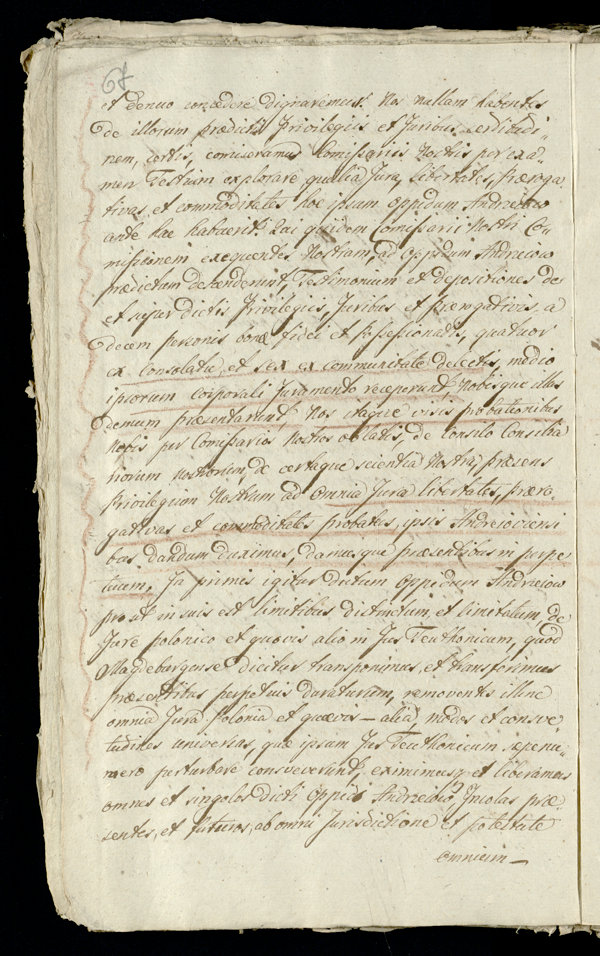 67
et denuo concedere dignaremus. Nos nullam habentes
de illorum prædictis Privilegiis et Juribus certitudi-
nem, certis, comiseramus Comissariis Nostris per exa-
men Testium explorare qualia Jura, libertates, præroga-
tivas et commoditates hoc ipsum oppidum Andrzeiow
ante hac habuerit. Qui quidem Comissarii Nostri Co-
missionem exequentes Nostram, ad oppidum Andreiow
prædictum descenderunt, Testimonium et depositiones de
et super dictis Privilegiis, Juribus et prærogativis, a
decem personis bonæ fidei et possessionatis, quatuor
ex consolatu, et sex ex communitate delectis, medio
ipsorum corporali Juramento receperunt, Nobisque illas
demum præsentarunt, Nos itaque visis probationibus
Nobis per Comissarios Nostros oblatis, de Consilo Consilia
riorum nostrorum, de certaque scientia Nostra, præsens
Privilegium Nostrum ad omnia Jura libertates, præro
gativas et commoditates probatas, ipsis Andreiociensi
bus dandum duximus, damusque præsentibus in perpe
tuum. In primis igitur dictum oppidum Andrieiow
prout in suis est limitibus distinctum, et limitatum, de
Jure polonico et quovis alio in Jus Teuthonicum, quod
Magdeburgense dicitur transponimus, et transferimus
præsentibus perpetuis duraturum, removentes illinc
omnia Jura Polonia et quævis – alia, modos et consve
tudines universas, quæ ipsum Jus Teuthonicum sæpenu-
mero perturbare consveverunt, eximimus, et liberamus
omnes et singolos dicti oppidi Andrzeiow, Incolas præ
sentes, et futuros, ab omni Jurisdictione et potestate
omnium –